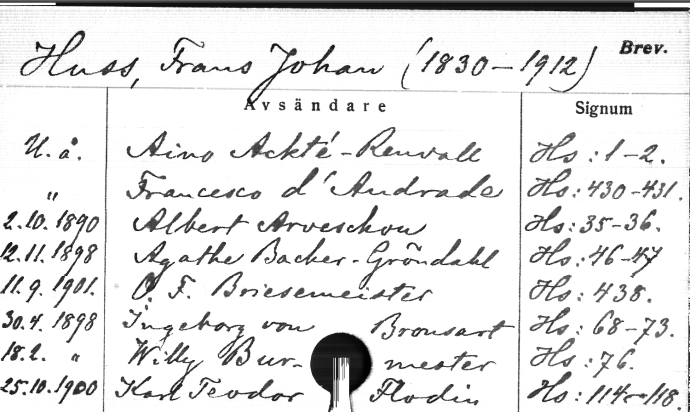 Huss, Frans Johan (1830-1912) Brev.
Avsändare Signum
U. å. Aino Ackté-Renvall Hs: 1-2.
" Francesco d'Andrade Hs: 430-431.
2.10.1890 Albert Arveschou Hs: 35-36.
12.11.1898 Agathe Backer-Gröndahl Hs: 46-47
11.9.1901. O. F. Briesemeister Hs: 438.
30.4.1898 Ingeborg von Bronsart Hs: 68-73.
18.2. " Willy Burmester Hs: 76.
25.10.1900 Karl Teodor Flodin Hs: 118.